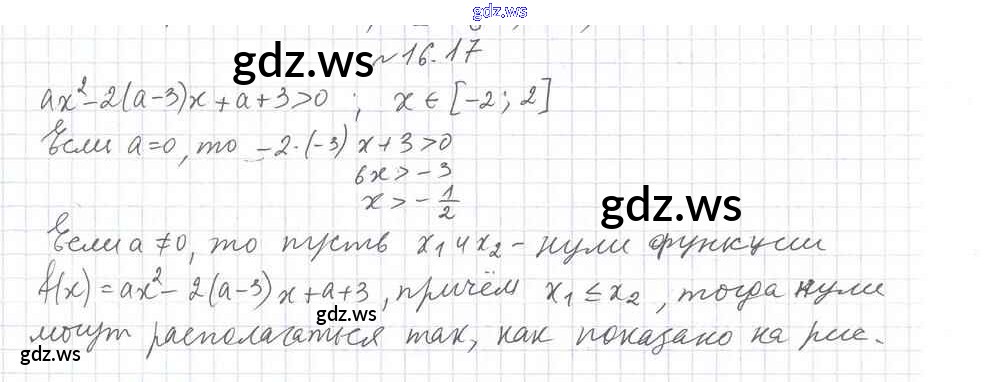 gdz.ws
gdz.ws
№16.17
ax²-2(a-3)x+a+3>0 ; x ∈ [-2; 2]
Если a=0, то -2·(-3)x+3>0
6x>-3
x>-1/2
gdz.ws
Если a≠0, то пусть x₁ и x₂ - нули функции
f(x)=ax²-2(a-3)x+a+3, причём x₁≤x₂, тогда нули
gdz.ws
могут располагаться так, как показано на рис.
gdz.ws